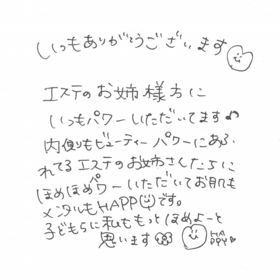 いつもありがとうございます
エステのお姉様方に
いつもパワーいただいてます♪
内側もビューティーパワーにあふ
れてるエステのお姉さんたちに
ほめほめパワーいただいてお肌も
メンタルもHAPPYです。
子どもらに私ももっとほめよーと
思います
HAPPY